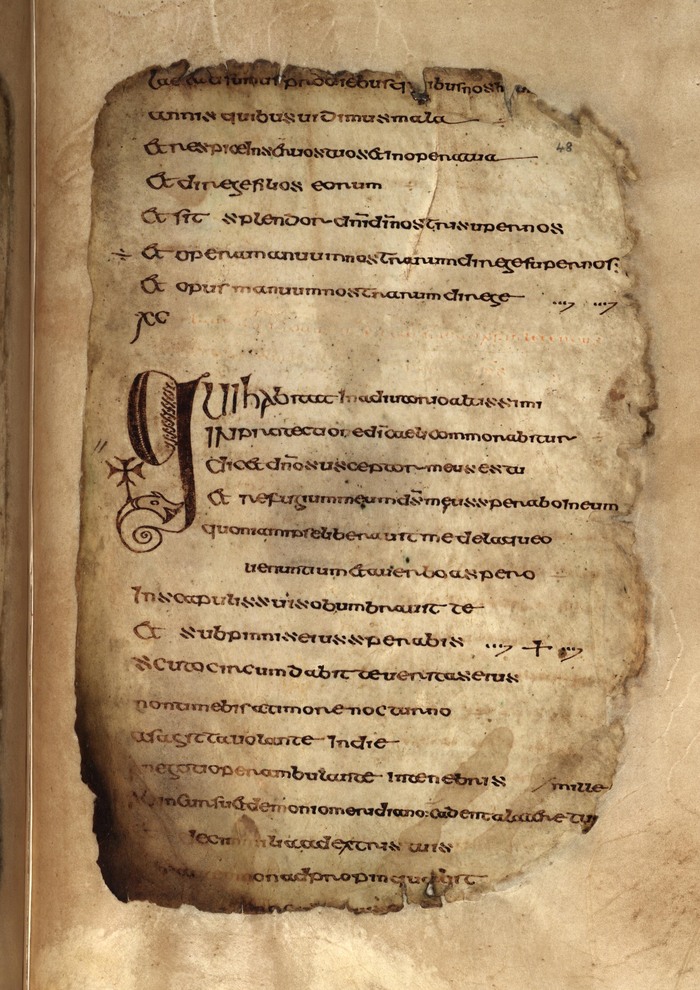 laetati sumus pro diebus quibus nos h
annis quibus uidimus mala
48
Et respice in seruos tuos & in opera tua
Et dirige filios eorum
Et sit splendor dn̄i dī nostri super nos
Et opera manuum nostrarum dirige super nos
Et opus manuum nostrarum dirige
xc
Qui habitat In adiutorio altissimi
IN protectione dī caeli commorabitur
Dicet dn̄o susceptor meus es tu
Et refugium meum ds̄ meus sperabo in eum
quoniam ipse liberauit me de laqueo
uenantium & a uerbo aspero
In scapulis suis obumbrauit te
Et sub pinnis eius sperabis
scuto circumdabit te ueritas eius
non timebis a timore nocturno
a sagitta uolante In die
negotio perambulante in tenebris mille
ruina & demonio meridiano: cadent a latere tuo
decem milia a dextris tuis
non adpropinquabit